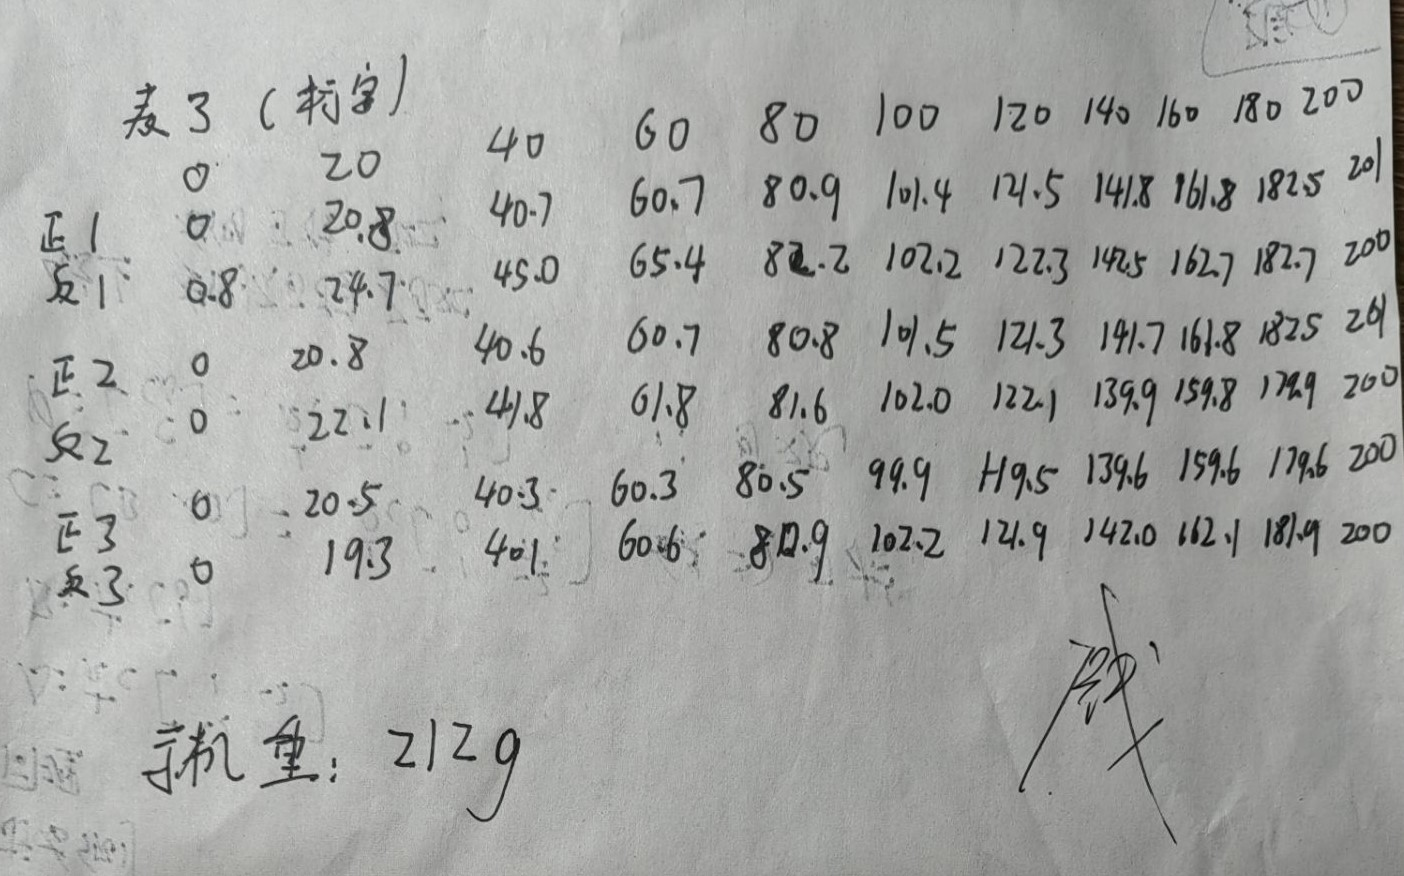 表3（打字）
0 20 40 60 80 100 120 140 160 180 200
正1 0 20.8 40.7 60.7 80.9 101.4 121.5 141.8 161.8 182.5 201
反1 0.8 24.7 45.0 65.4 82.2 102.2 122.3 142.5 162.7 182.7 200
正2 0 20.8 40.6 60.7 80.8 101.5 121.3 141.7 161.8 182.5 201
反2 0 22.1 41.8 61.8 81.6 102.0 122.1 139.9 159.8 179.9 200
正3 0 20.5 40.3 60.3 80.5 99.9 119.5 139.6 159.6 179.6 200
反3 0 19.3 40.1 60.6 80.9 102.2 121.9 142.0 162.1 181.9 200
重：212g